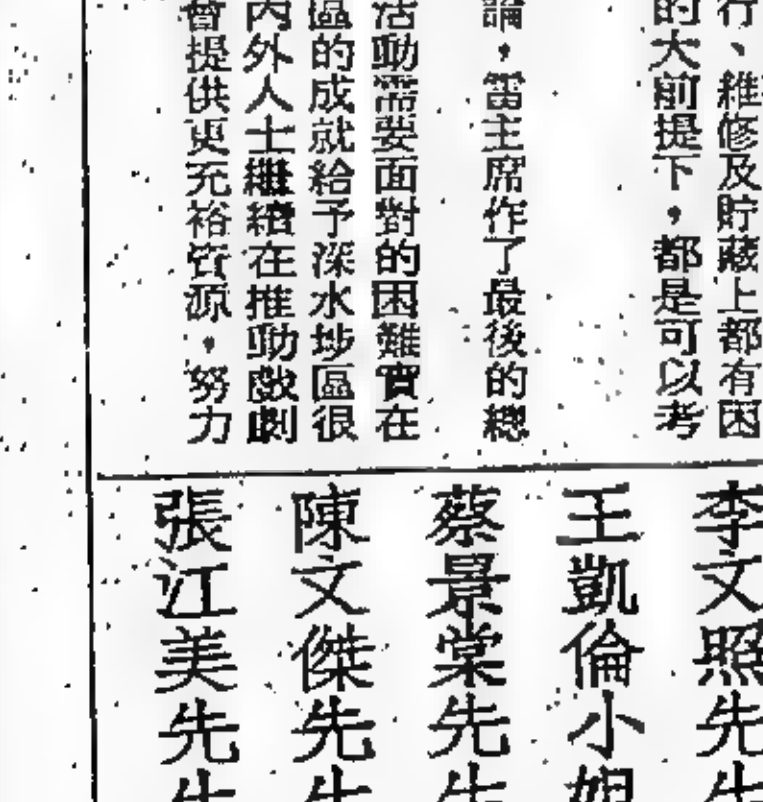 行、維修及貯藏上都有困
的大前提下，都是可以考
論，雷主席作了最後的總
活動需要面對的困難實在
區的成就給予深水埗區很
內外人士繼續在推動戲劇
會提供更充裕資源，努力
李文照先生
王凱倫小姐
蔡景棠先生
陳文傑先生
張江美先生